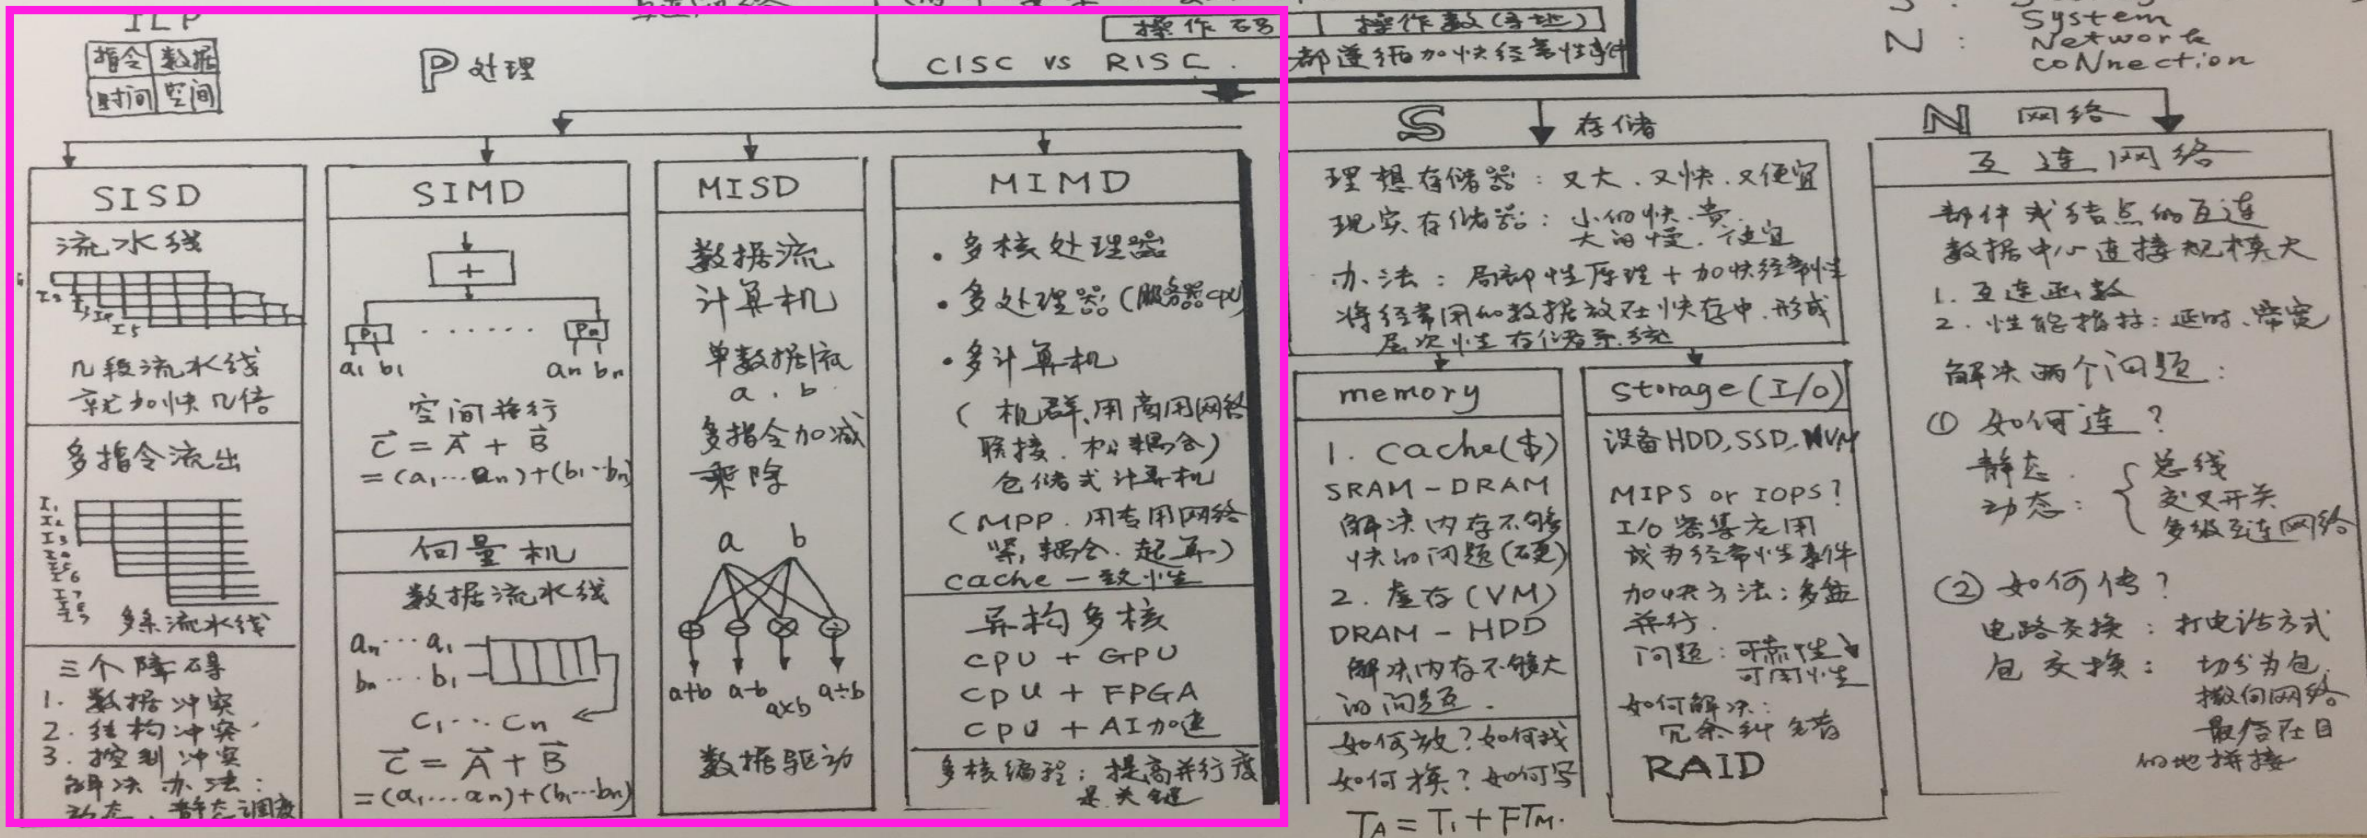 ILP
指令 数据
时间 空间
P 处理
操作码 操作数(寻址)
CISC vs RISC. 都遵循加快经常性事件
System
N : Network
coNnection
SISD
流水线
I2
I3
I4
I5
几段流水线
就加快几倍
多指令流出
I1
I2
I3
I4
I5
I6
I7
I8
I9
多条流水线
三个障碍
1. 数据冲突
2. 结构冲突
3. 控制冲突
解决办法:
动态、静态调度
SIMD
+
P1 ...... Pn
a1 b1 an bn
空间并行
C = A + B
=(a1...an)+(b1..bn)
向量机
数据流水线
an...a1
bn...b1
C1...Cn
C = A + B
=(a1...an)+(b1...bn)
MISD
数据流
计算机
单数据流
a . b
多指令加减
乘除
a b
+ − × ÷
a+b a-b a×b a÷b
数据驱动
MIMD
• 多核处理器
• 多处理器(服务器CPU)
• 多计算机
(机群、用商用网络
联接. 松耦合)
仓储式计算机
(MPP. 用专用网络
紧耦合. 超算)
cache一致性
异构多核
CPU + GPU
CPU + FPGA
CPU + AI加速
多核编程: 提高并行度
是关键
S 存储
理想存储器: 又大、又快、又便宜
现实存储器: 小的快、贵.
大的慢、便宜
办法: 局部性原理+加快经常性
将经常用的数据放在快存中.形成
层次性存储系统
memory
1. Cache($)
SRAM-DRAM
解决内存不够
快的问题(硬)
2. 虚存(VM)
DRAM-HDD
解决内存不够大
的问题.
如何放?如何找
如何换?如何写
TA = T1 + FTM.
storage(I/O)
设备HDD,SSD,NVM
MIPS or IOPS?
I/O密集应用
成为经常性事件
加快方法:多盘
并行.
问题:可靠性
可用性
如何解决:
冗余纠错
RAID
N 网络
互连网络
部件或结点的互连
数据中心连接规模大
1. 互连函数
2. 性能指标: 延时、带宽
解决两个问题:
① 如何连?
静态.
动态: { 总线
交叉开关
多级互连网络
② 如何传?
电路交换: 打电话方式
包交换: 切分为包.
撒向网络
最后在目
的地拼接